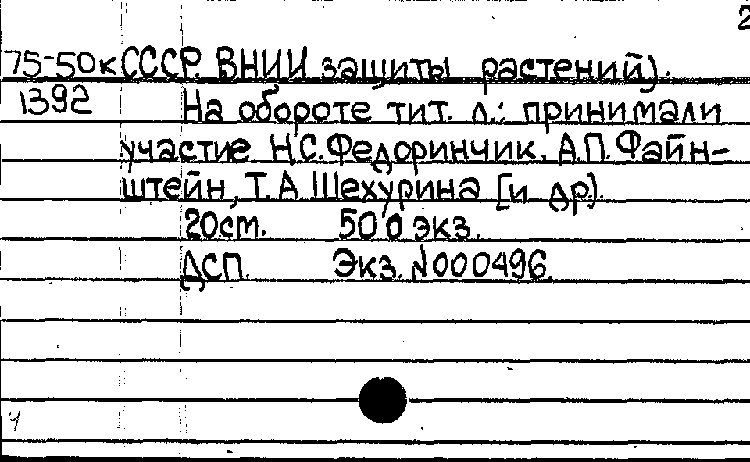 2
75-50к СССР. ВНИИ защиты растений).
1392 На обороте тит. л.: принимали
участие Н.С. Федоринчик, А.П. Файн-
штейн, Т.А. Шехурина [и др].
20см. 500 экз.
ДСП. Экз. №000496.